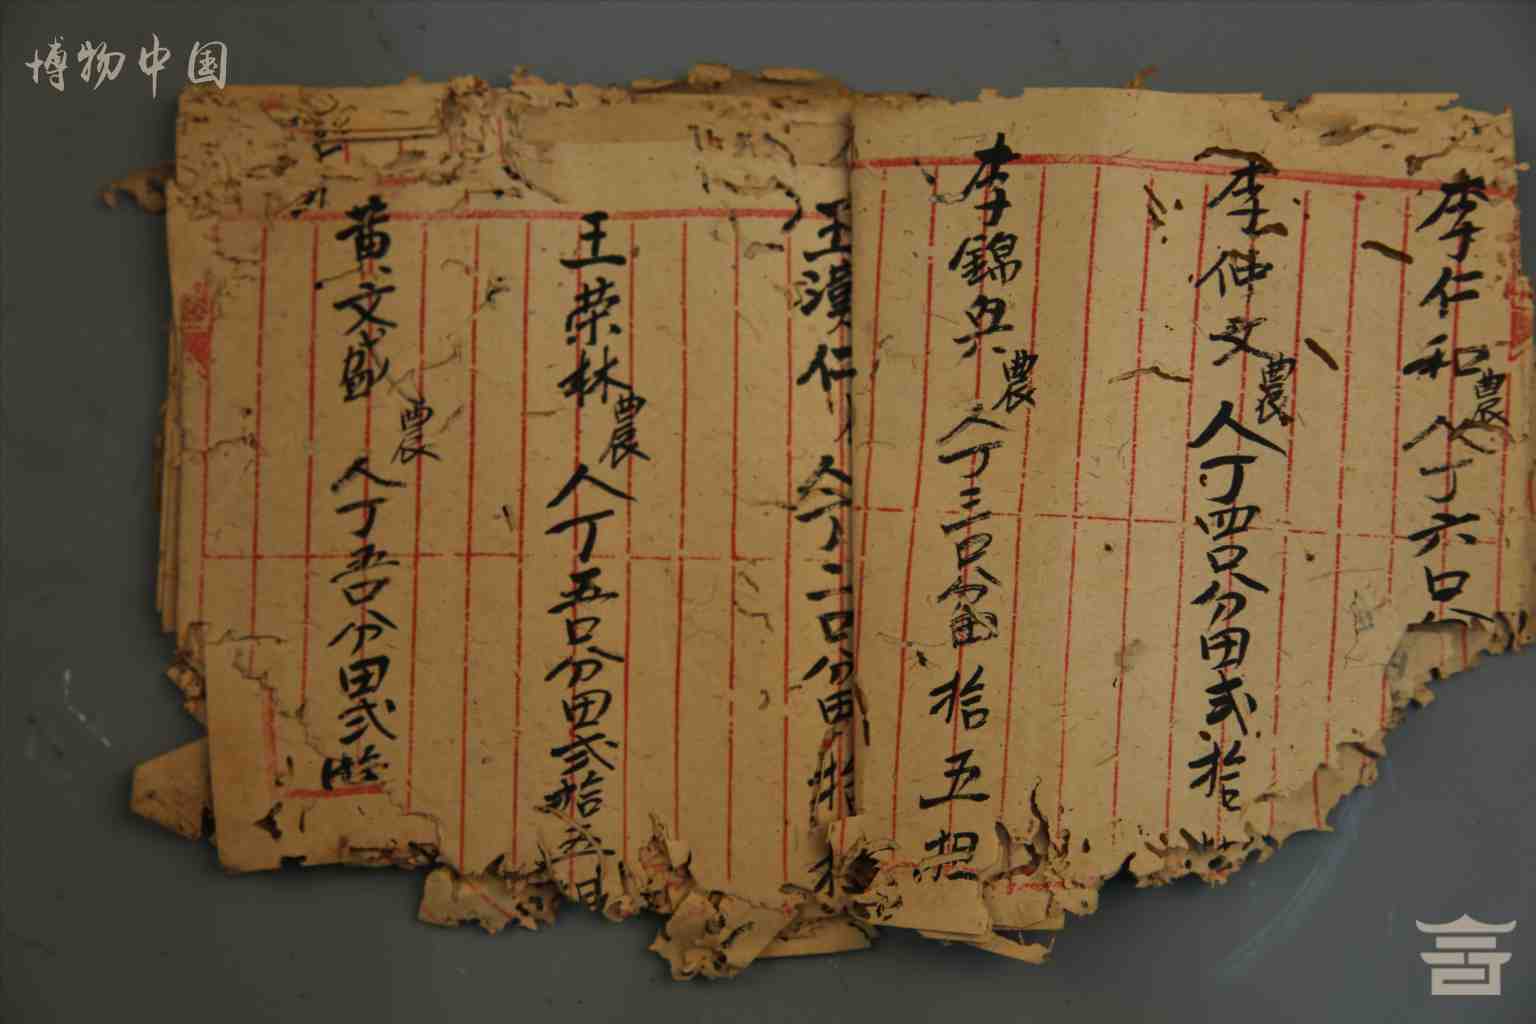 博物中国
李仁和農 人丁六口分
李仲文農 人丁四口分田弍拾
李錦興農 人丁三口分田拾五担
王漢仁 人丁二口分田拾
王荣林農 人丁五口分田弍拾五
黄文盛農 人丁五口分田弍拾